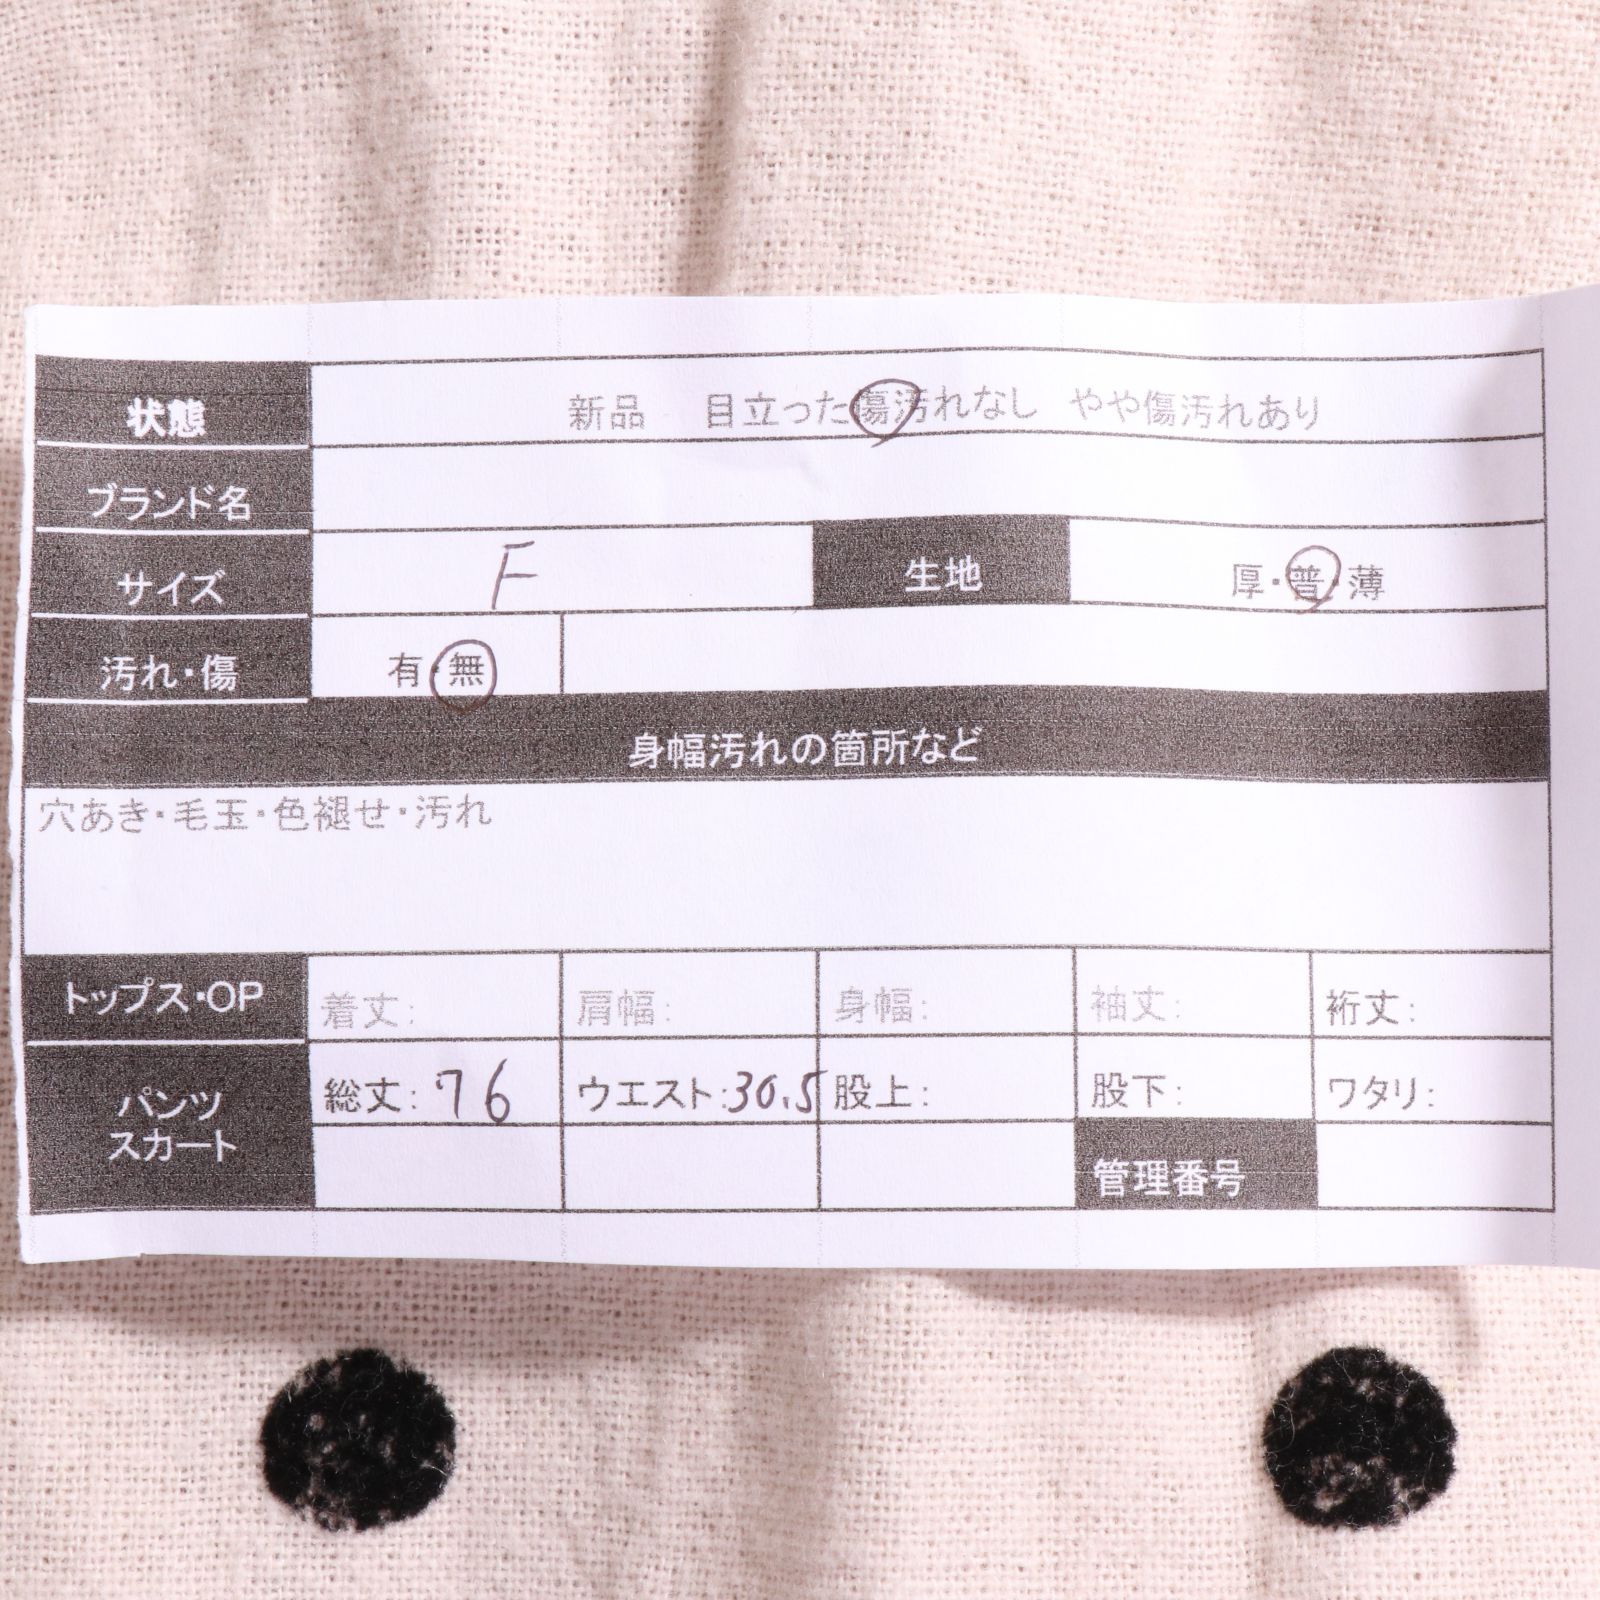 状態 新品 目立った傷汚れなし やや傷汚れあり
ブランド名
サイズ F 生地 厚・普・薄
汚れ・傷 有・無
身幅汚れの箇所など
穴あき・毛玉・色褪せ・汚れ
トップス・OP 着丈: 肩幅: 身幅: 袖丈: 裄丈:
パンツ スカート 総丈: 76 ウエスト: 30.5 股上: 股下: ワタリ:
管理番号